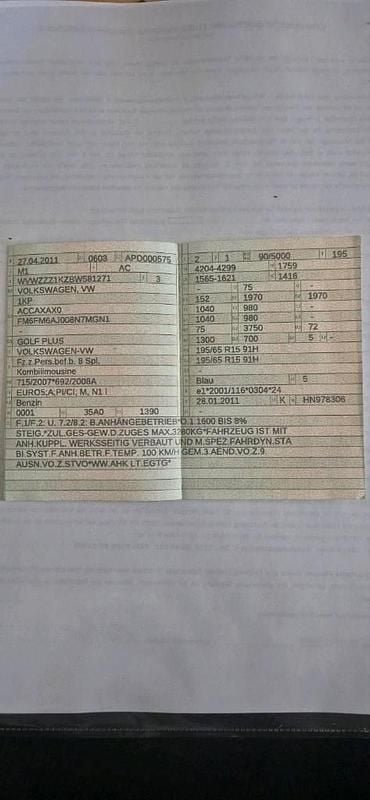 27.04.2011 0603 APD000575
M1 AC
WVWZZZ1KZBW581271 3
VOLKSWAGEN, VW
1KP
ACCAXAX0
FM6FM6AJ008N7MGN1
-
GOLF PLUS
VOLKSWAGEN-VW
Fz.z.Pers.bef.b. 8 Spl.
Kombilimousine
715/2007*692/2008A
EURO5;A;PI/CI; M, N1 I
Benzin
0001 35A0 1390
2 1 90/5000 195
4204-4299 1759
1565-1621 1416
- 75 -
152 1970 1970
1040 980 -
1040 980 -
75 3750 72
1300 700 5 -
195/65 R15 91H
195/65 R15 91H
-
Blau 5
e1*2001/116*0304*24
28.01.2011 K HN978306
-
F.1/F.2: U. 7.2/8.2: B.ANHÄNGEBETRIEB*O.1:1600 BIS 8%
STEIG.*ZUL.GES-GEW.D.ZUGES MAX.3280KG*FAHRZEUG IST MIT
ANH.KUPPL. WERKSSEITIG VERBAUT UND M.SPEZ.FAHRDYN.STA
BI.SYST.F.ANH.BETR.F.TEMP. 100 KM/H GEM.3.AEND.VO.Z.9.
AUSN.VO.Z.STVO*WW.AHK LT.EGTG*